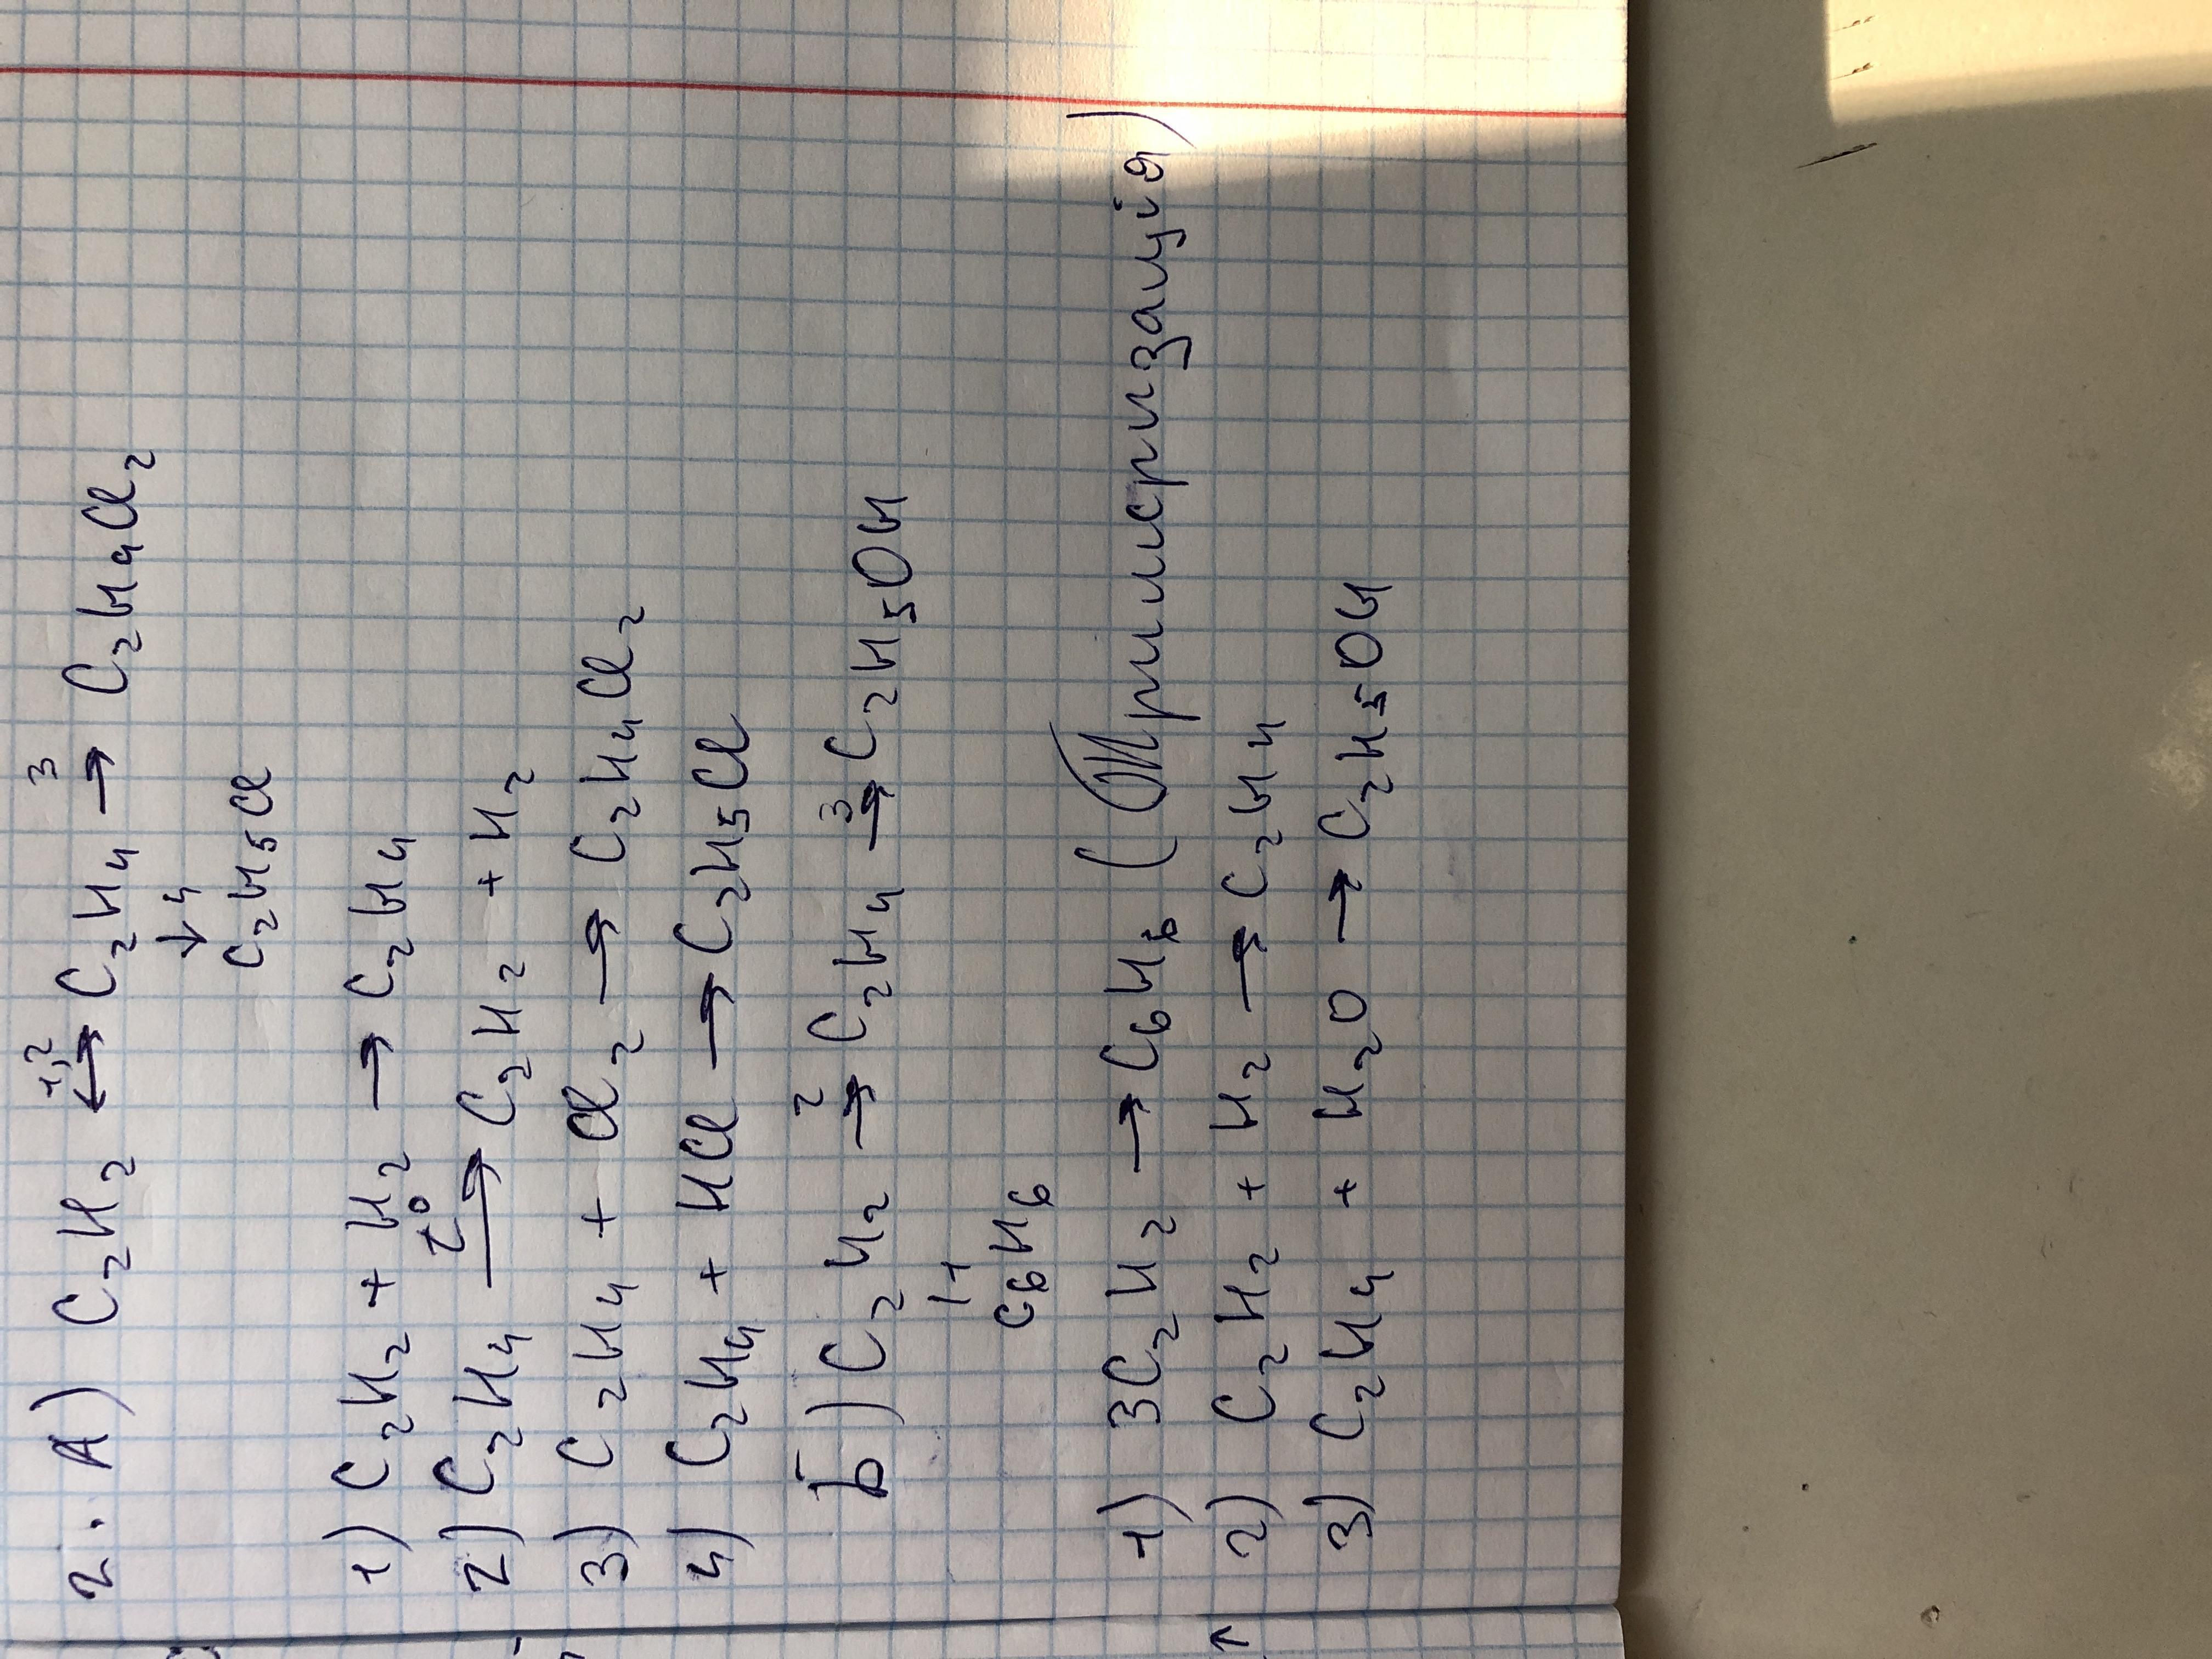 2. А) C₂H₂ ⟷^{1,2} C₂H₄ →^{3} C₂H₄Cl₂
↓4
C₂H₅Cl
1) C₂H₂ + H₂ → C₂H₄
2) C₂H₄ →^{t°} C₂H₂ + H₂
3) C₂H₄ + Cl₂ → C₂H₄Cl₂
4) C₂H₄ + HCl → C₂H₅Cl
Б) C₂H₂ →^{2} C₂H₄ →^{3} C₂H₅OH
| 1
C₆H₆
1) 3C₂H₂ → C₆H₆ (тримеризація)
2) C₂H₂ + H₂ → C₂H₄
3) C₂H₄ + H₂O → C₂H₅OH